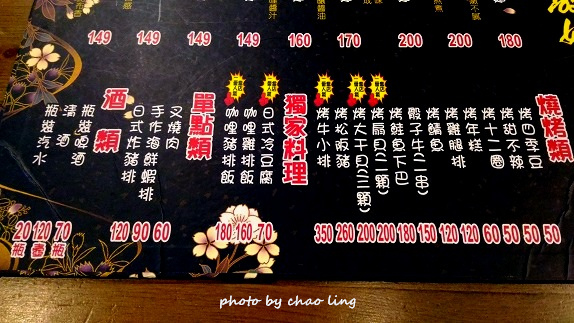 180
200
200
170
160
149
149
149
149
燒烤類
烤四季豆
50
烤甜不辣
50
烤十二圈
50
烤年糕
60
烤雞腿排
120
烤鯖魚
120
骰子牛(二串)
150
烤鮭魚下巴
180
烤扇貝(二顆)
200
烤大干貝(三顆)
200
烤松阪豬
260
烤牛小排
350
獨家料理
日式冷豆腐
70
咖哩雞排飯
160
咖哩豬排飯
180
單點類
叉燒肉
60
手作海鮮蝦排
90
日式炸豬排
120
酒類
瓶裝啤酒
70瓶
清酒
120壺
瓶裝汽水
20瓶
photo by chao ling